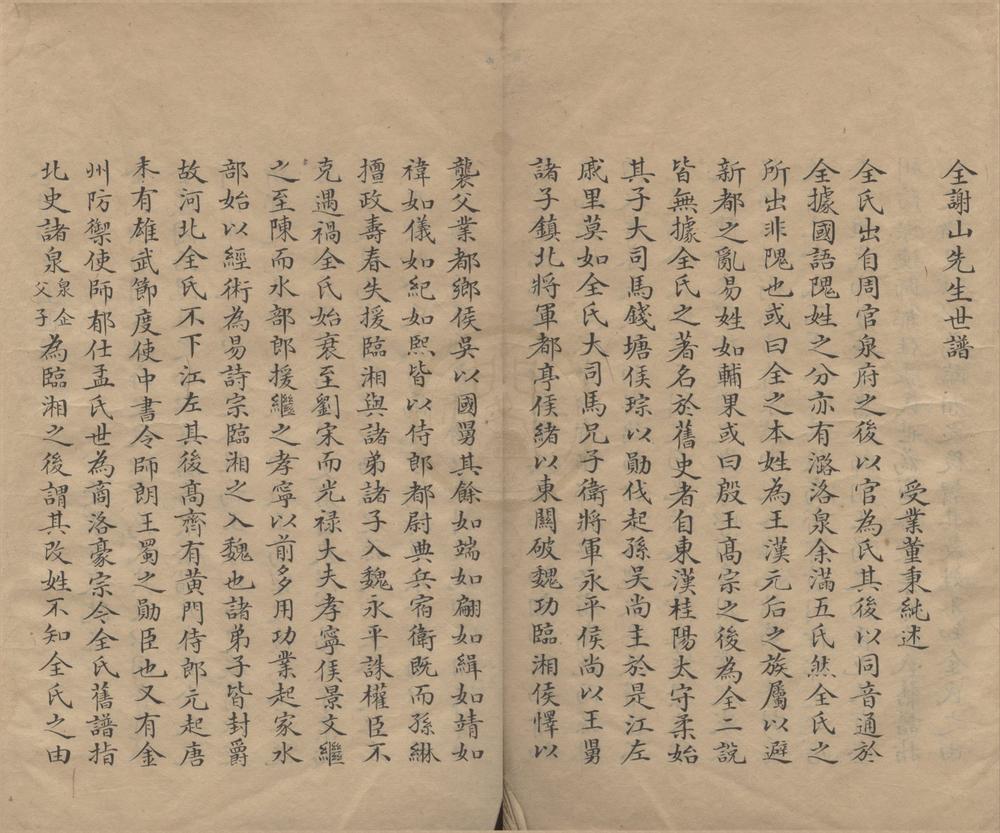 全謝山先生世譜
受業董秉純述
全氏出自周官泉府之後以官為氏其後以同音通於
全據國語隗姓之分亦有潞洛泉余滿五氏然全氏之
所出非隗也或曰全之本姓為王漢元后之族屬以避
新都之亂易姓如輔果或曰殷王高宗之後為全二說
皆無據全氏之著名於舊史者自東漢桂陽太守柔始
其子大司馬錢塘侯琮以勛伐起孫吳尚主於是江左
戚里莫如全氏大司馬兄子衛將軍永平侯尚以王舅
諸子鎮北將軍都亭侯緒以東關破魏功臨湘侯懌以
襲父業都鄉侯吳以國舅其餘如端如翩如緝如靖如
禕如儀如紀如熙皆以侍郎都尉典兵宿衛既而孫綝
擅政壽春失援臨湘與諸弟諸子入魏永平誅權臣不
克遇禍全氏始衰至劉宋而光祿大夫孝寧侯景文繼
之至陳而水部郎援繼之孝寧以前多用功業起家水
部始以經術為易詩宗臨湘之入魏也諸弟子皆封爵
故河北全氏不下江左其後高齊有黃門侍郎元起唐
末有雄武節度使中書令師朗王蜀之勛臣也又有金
州防禦使師郁仕孟氏世為商洛豪宗令全氏舊譜指
北史諸泉泉企父子為臨湘之後謂其改姓不知全氏之由